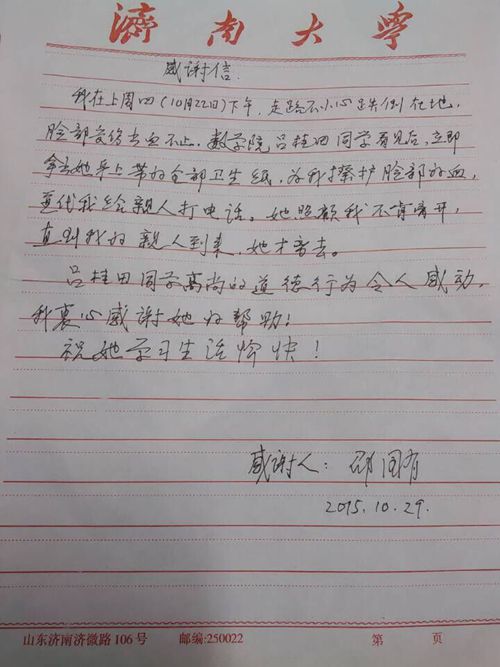 濟南大學
感谢信
我在上周四(10月22日)下午,走路不小心跌倒在地,
脸部受伤出血不止。数学院吕桂田同学看见后,立即
拿出她手上带的全部卫生纸,为我擦护脸部的血,
并代我给亲人打电话。她照顾我不肯离开,
直到我的亲人到来,她才离去。
吕桂田同学高尚的道德行为令人感动,
我衷心感谢她的帮助!
祝她学习生活愉快!
感谢人:邵国有
2015.10.29.
山东济南济微路106号 邮编:250022 第 页